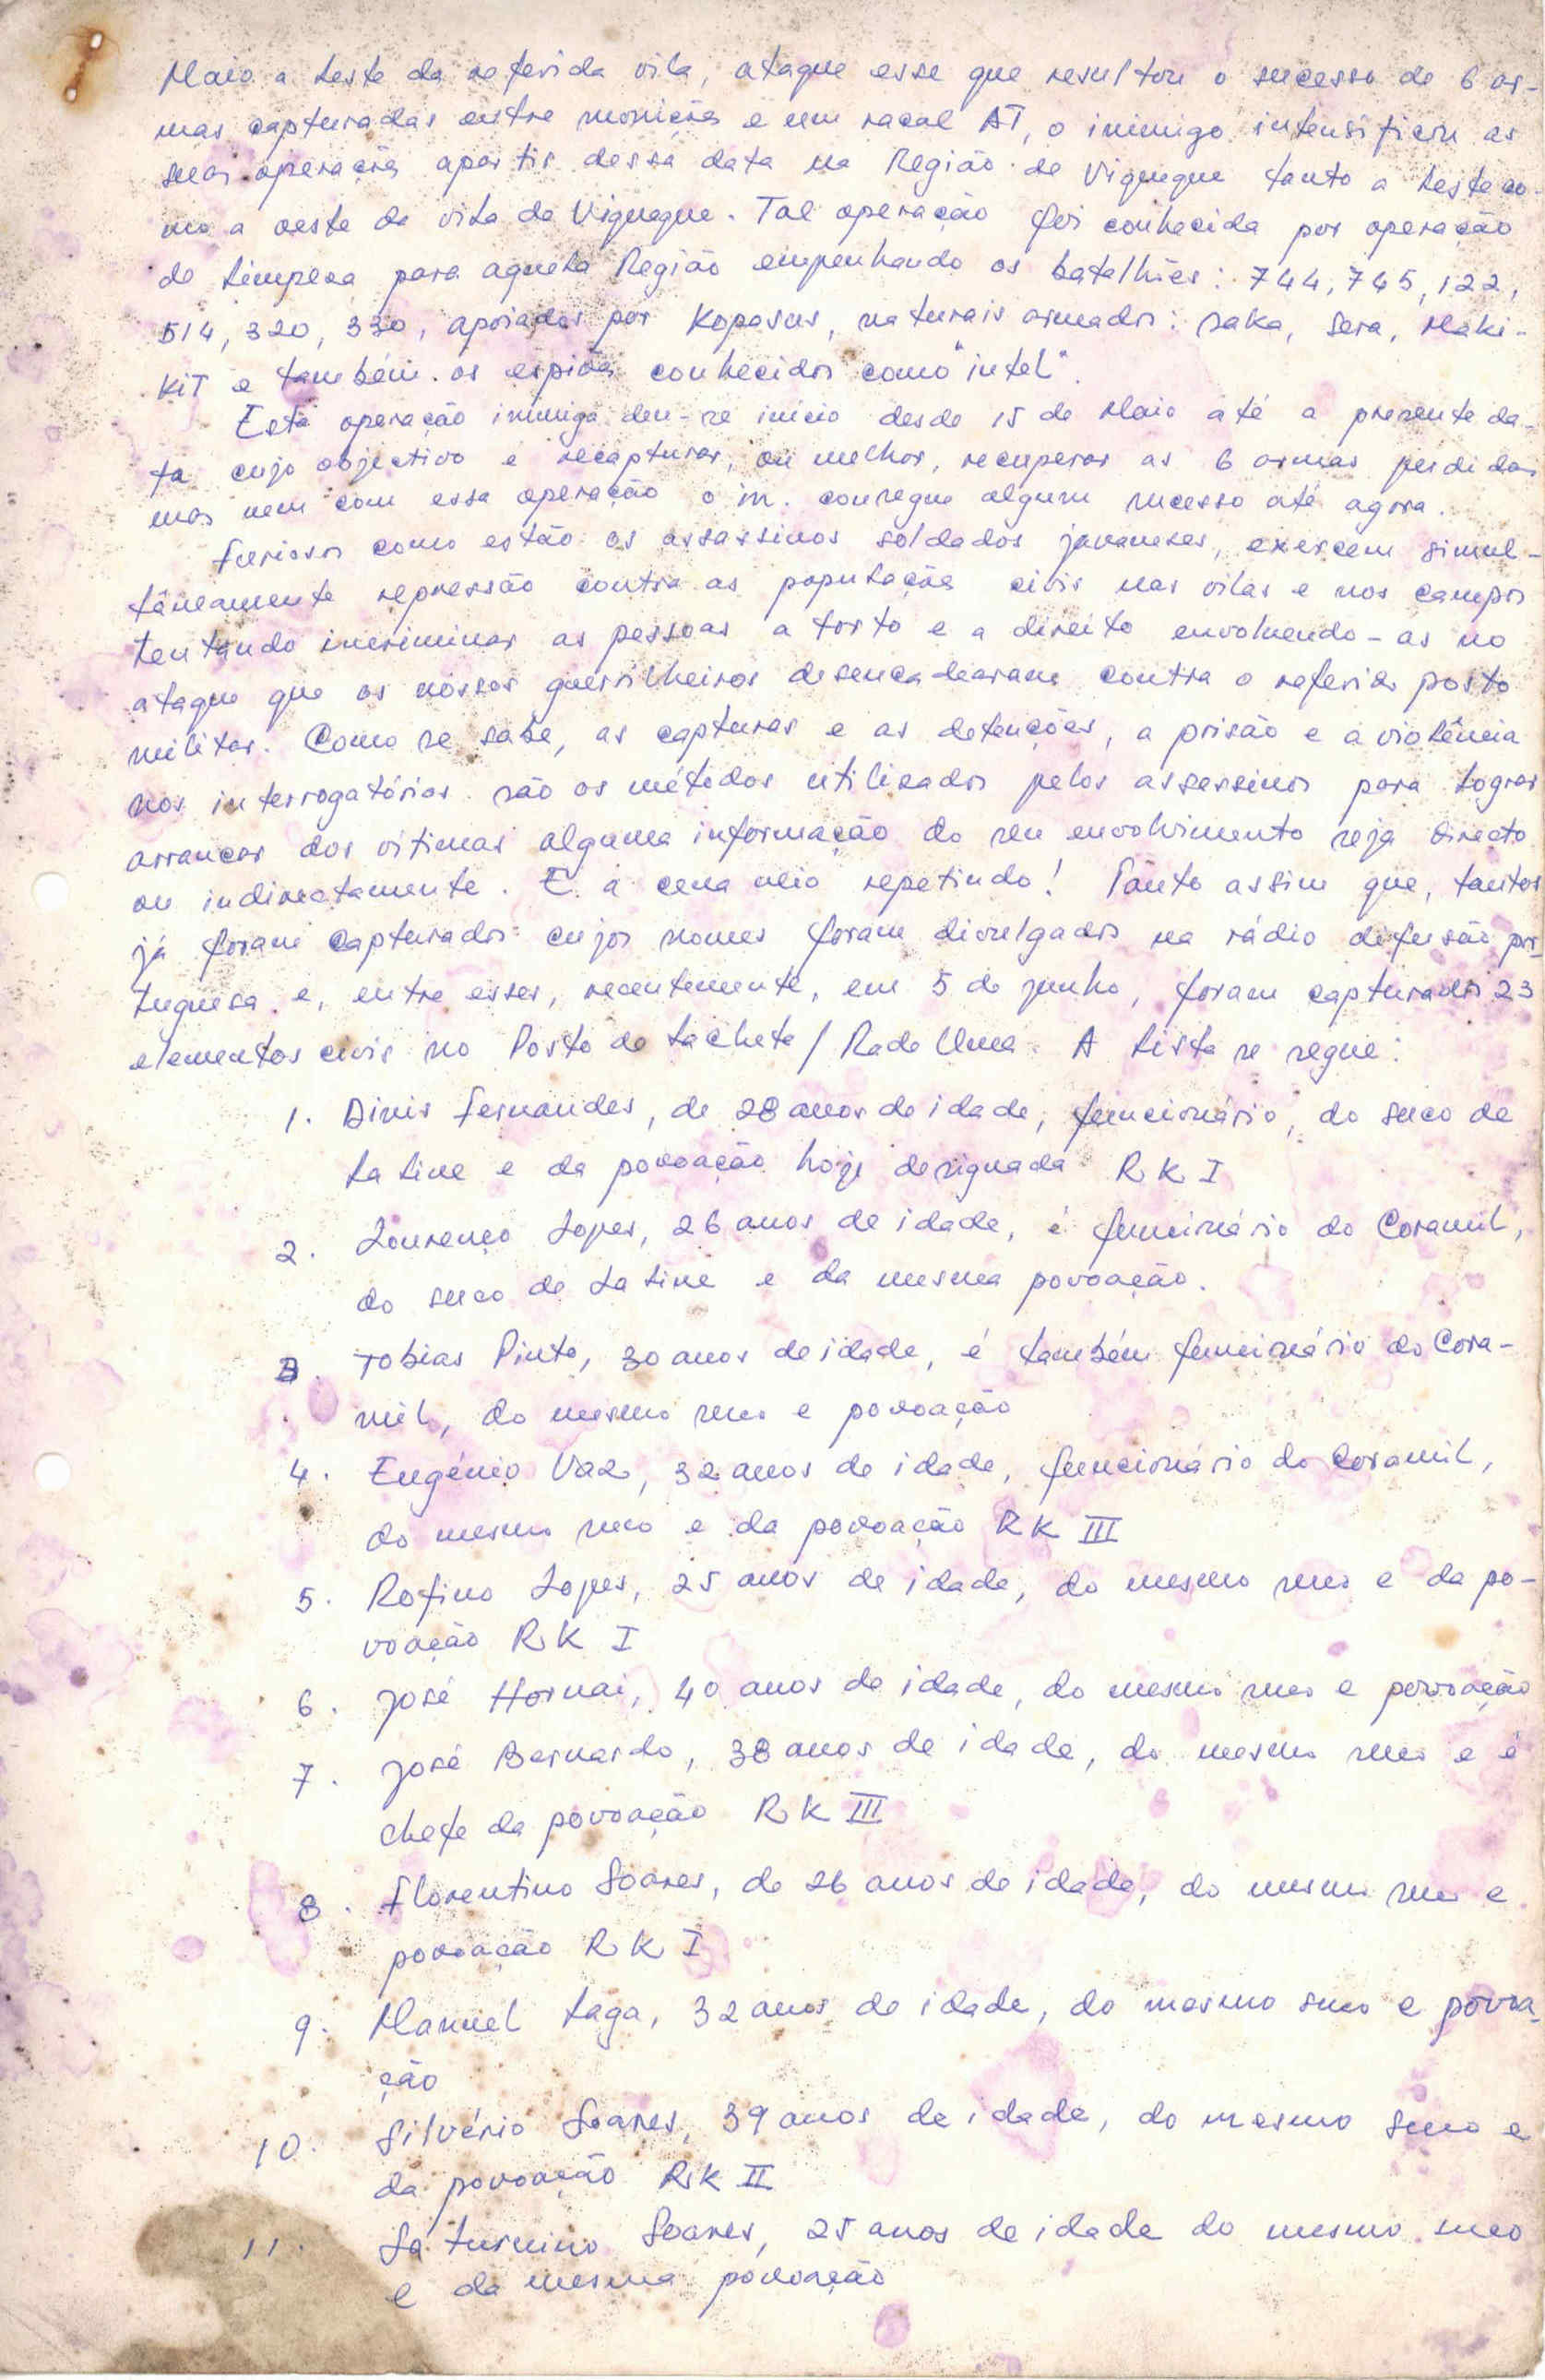 Maio a leste da referida vila, ataque esse que resultou o sucesso de 6 ar-
mas capturadas entre monições e um racal AT, o inimigo intensificou as
suas operações apartir dessa data na Região de Viqueque tanto a leste co-
mo a oeste da vila de Viqueque. Tal operação foi conhecida por operação
de limpeza para aquela Região empenhando os batalhões: 744, 745, 122,
514, 320, 330, apoiados por Kopasus, naturais armados: saka, sera, Maki-
kit e também os espiões conhecidos como "intel".
Esta operação inimiga deu-se início desde 15 de Maio até a presente da-
ta cujo objectivo é recapturar, ou melhor, recuperar as 6 armas perdidas
mas nem com essa operação o in. consegue algum sucesso até agora.
Furiosos como estão os assassinos soldados javaneses, exercem simul-
tâneamente repressão contra as populações civis nas vilas e nos campos
tentando incriminar as pessoas a torto e a direito envolvendo-as no
ataque que os nossos guerrilheiros desencadearam contra o referido posto
militar. Como se sabe, as capturas e as detenções, a prisão e a violência
nos interrogatórios são os métodos utilizados pelos assassinos para lograr
arrancar dos vítimas alguma informação do seu envolvimento seja directo
ou indirectamente. E a cena veio repetindo! Tanto assim que, tantos
já foram capturados cujos nomes foram divulgados na rádio difusão por-
tuguesa e, entre esses, recentemente, em 5 de junho, foram capturados 23
elementos civis no Posto de Lacluta / Rade Uma. A lista se segue:
1. Dinis Fernandes, de 28 anos de idade, funcionário, do suco de
Laline e da povoação hoje designada RK I
2. Lourenço Lopes, 26 anos de idade, é funcionário do Coramil,
do suco de Laline e da mesma povoação.
3. Tobias Pinto, 30 anos de idade, é também funcionário do Cora-
mil, do mesmo suco e povoação
4. Eugénio Vaz, 32 anos de idade, funcionário do Coramil,
do mesmo suco e da povoação RK III
5. Rofino Lopes, 25 anos de idade, do mesmo suco e da po-
voação RK I
6. José Hornai, 40 anos de idade, do mesmo suco e povoação
7. José Bernardo, 38 anos de idade, do mesmo suco e é
chefe da povoação RK III
8. Florentino Soares, de 26 anos de idade, do mesmo suco e
povoação RK I
9. Manuel Laga, 32 anos de idade, do mesmo suco e povoa-
ção
10. Silvério Soares, 39 anos de idade, do mesmo suco e
da povoação RK II
11. Sáturnino Soares, 25 anos de idade do mesmo suco
e da mesma povoação